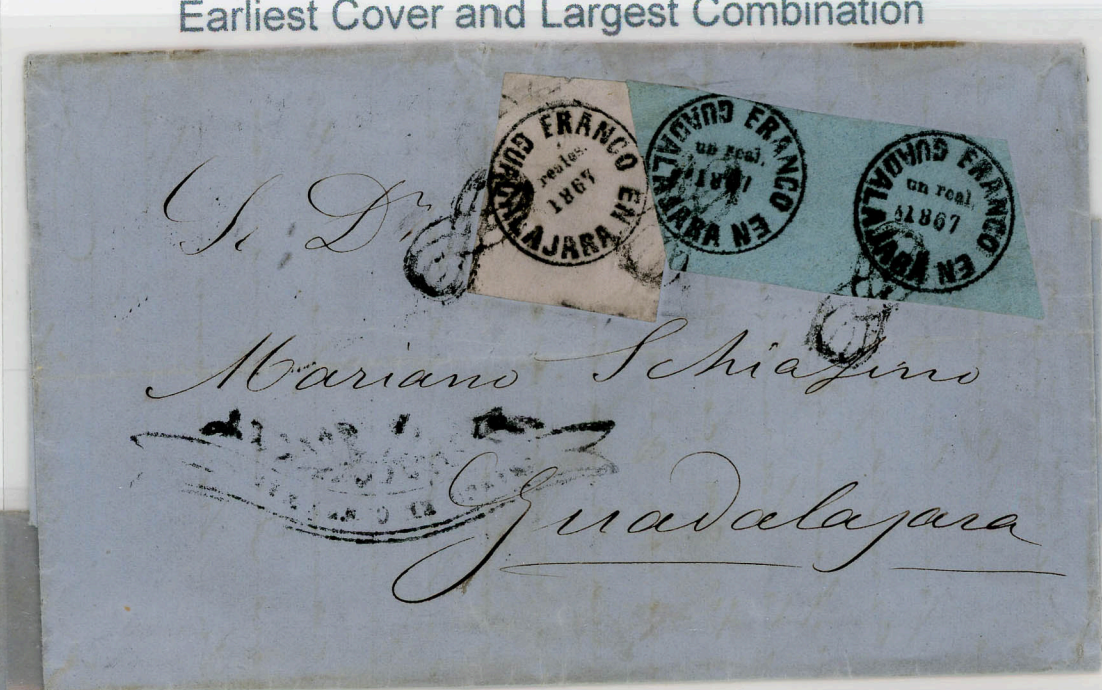 Earliest Cover and Largest Combination
FRANCO EN GUADALAJARA
reales.
1867
FRANCO EN GUADALAJARA
un real.
1867
FRANCO EN GUADALAJARA
un real.
1867
Sr Dn
Mariano Schiafino
Guadalajara